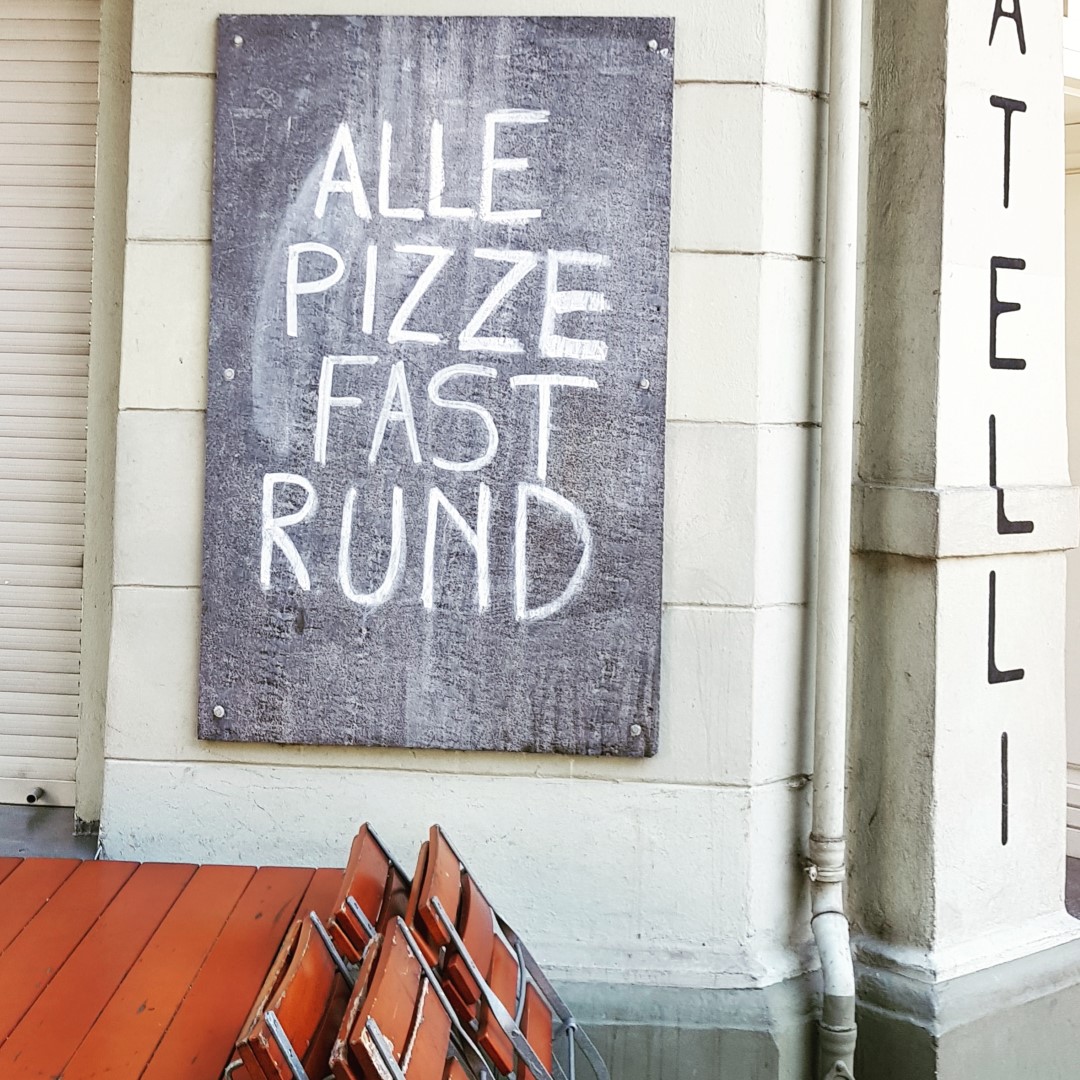 ALLE
PIZZE
FAST
RUND
ATELLI